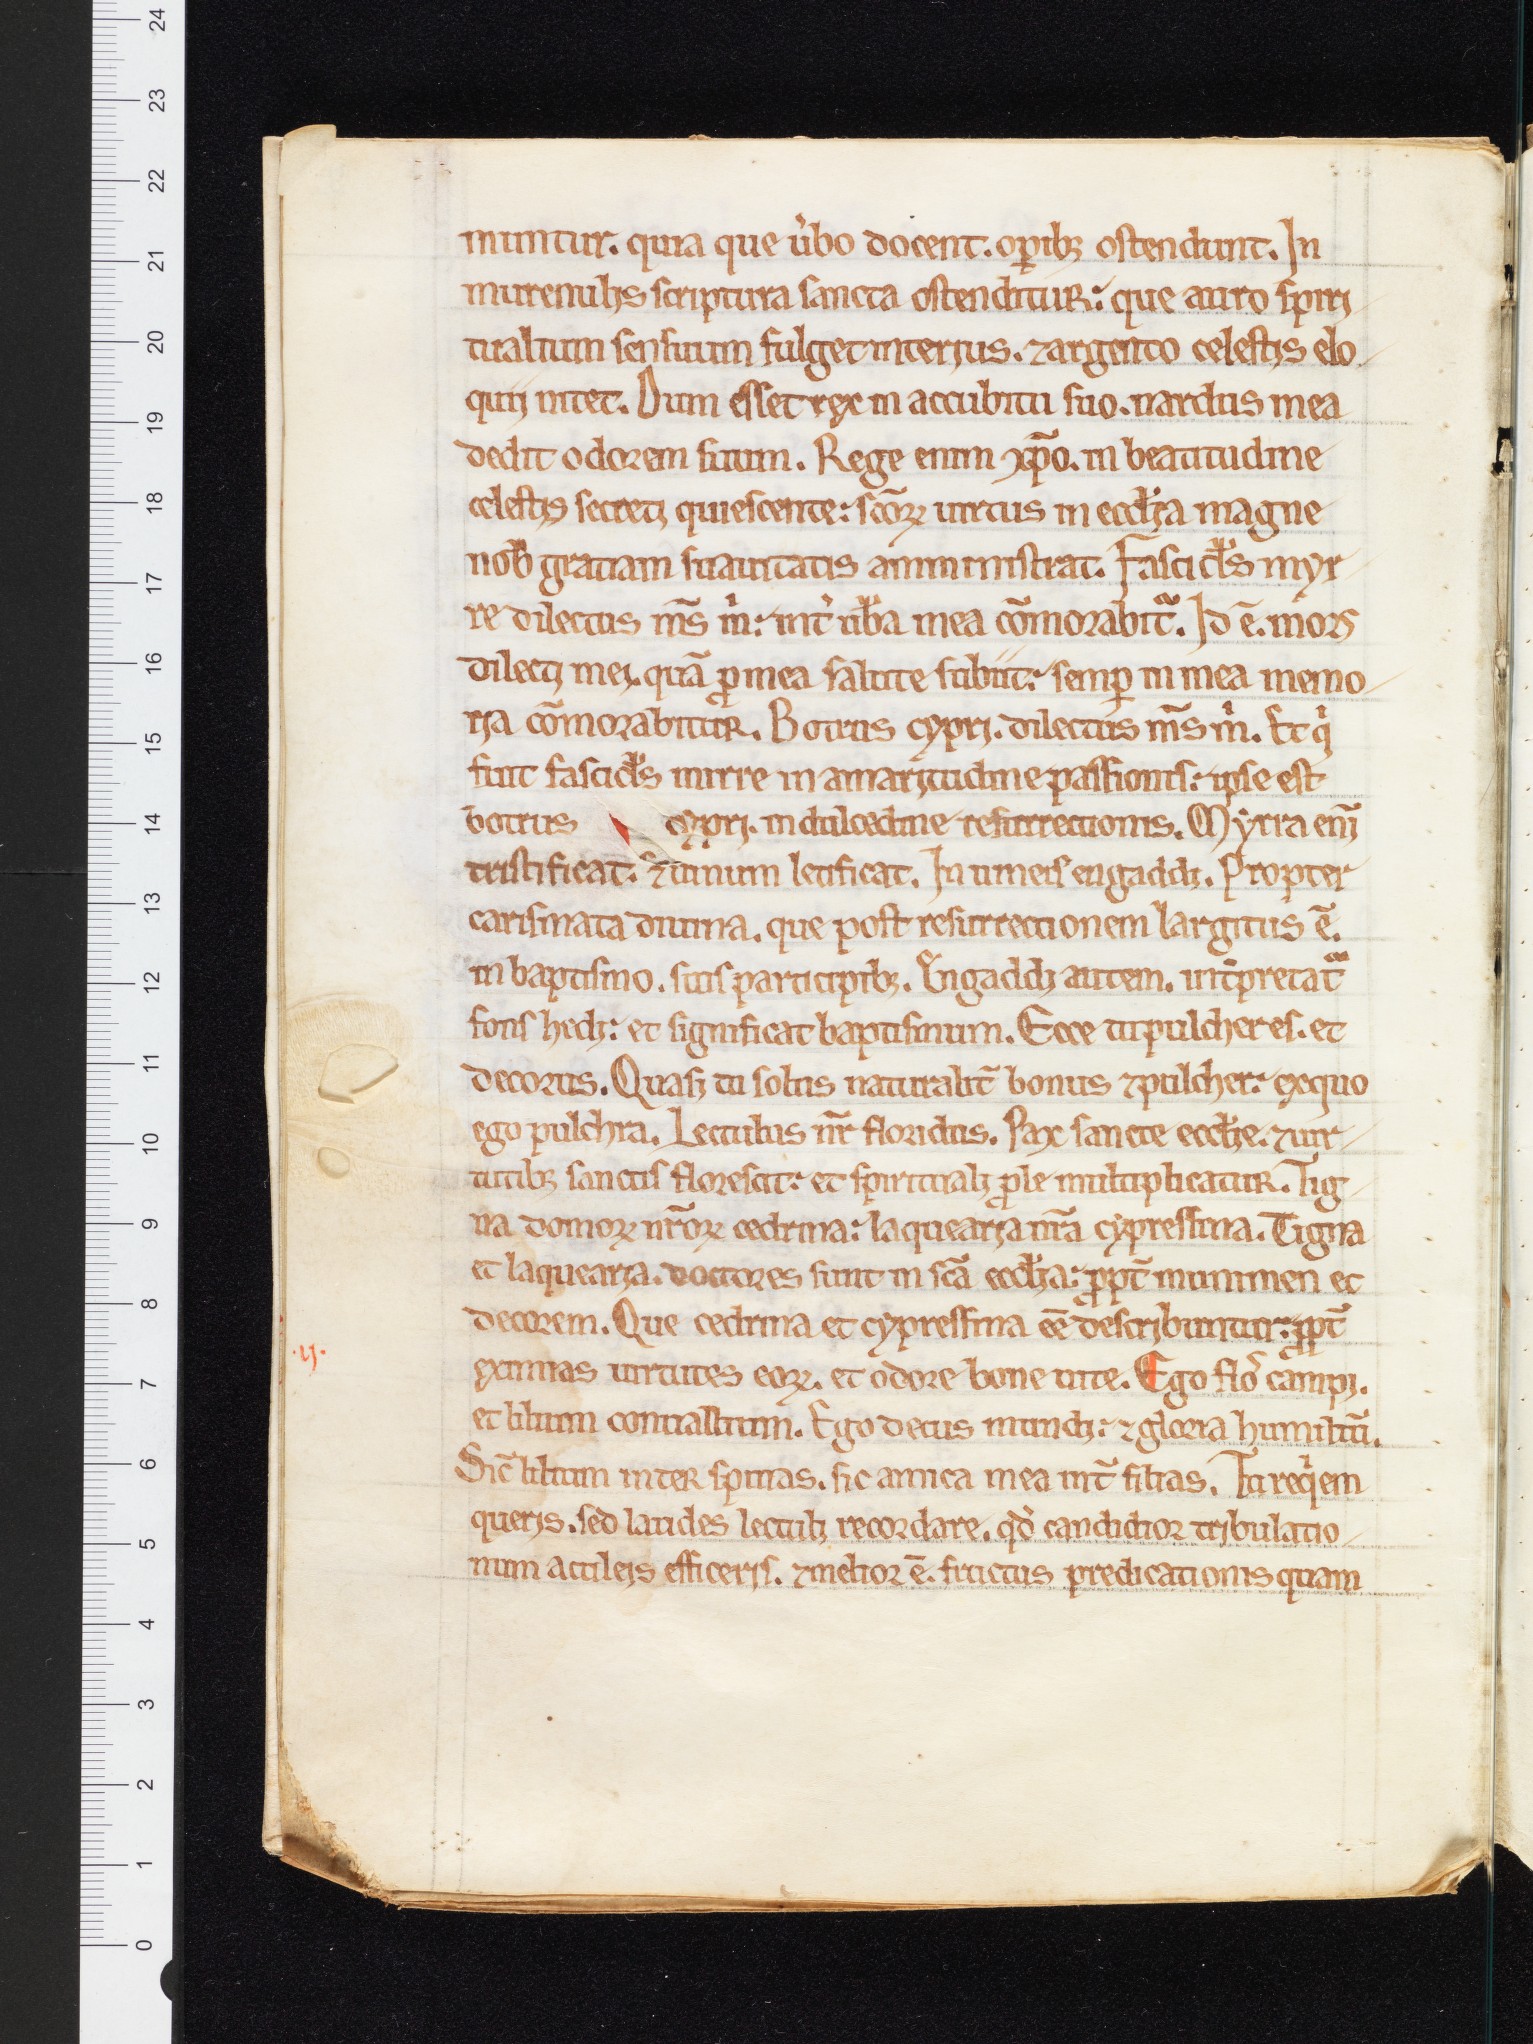 muntur. quia que ůbo docent. opibꝫ ostendunt. In
murenulis scriptura sancta ostenditur: que auro spiri
tualium sensuum fulget interius. ⁊ argento celestis elo
quii nitet. Dum esset rex in accubitu suo. nardus mea
dedit odorem suum. Rege enim xp̄o. in beatitudine
celestis secreti quiescente: sc̄oꝝ uirtus in eccl̓ia magne
nob̓ gratiam suauitatis amministrat. Fascicl̓s myr
re dilectus m̄s m̓: int̓ ub̓a mea cōmorabit᷑. Id ē. mors
dilecti mei. quā ꝓ mea salute subiit: semꝑ in mea memo
ria cōmorabitur. Botrus cypri. dilectus m̄s m̓. Et q̓
fuit fascicl̓s mirre in amaritudine passionis: ipse est
botrus cypri. in dulcedine resurrectionis. Myrra eni̅
tristificat. ⁊ uinum letificat. In uineis engaddi. Propter
carismata diuina. que post resurrectionem largitus ē.
in baptismo. suis participibꝫ. Engaddi autem. int̓pretat᷑
fons hedi: et significat baptismum. Ecce tu pulcher es. et
decorus. Quasi tu solus naturalit̄ bonus ⁊ pulcher: ex quo
ego pulchra. Lectulus nr̄ floridus. Pax sancte eccl̓ie. ⁊ uir
tutibꝫ sanctis florescit: et spirituali ꝓle multiplicatur. Tig
na domoꝝ nr̄oꝝ cedrina: laquearia nr̄a cypressina. Tigna
et laquearia. doctores sunt in sc̄a eccl̓ia: ꝓpt̄ munimen et
decorem. Que cedrina et cypressina eē describuntur: ꝓpt̄
.ij.
eximias uirtutes eoꝝ. et odore bone uite. Ego flos campi.
et lilium conuallium. Ego decus mundi: ⁊ gloria humiliū.
Sic̄ lilium inter spinas. sic amica mea int̄ filias. Tu req̓em
queris. sed laudes lectuli recordare. qd̓ candidior tribulatio
num aculeis efficeris. ⁊ melior ē. fructus predicationis quam